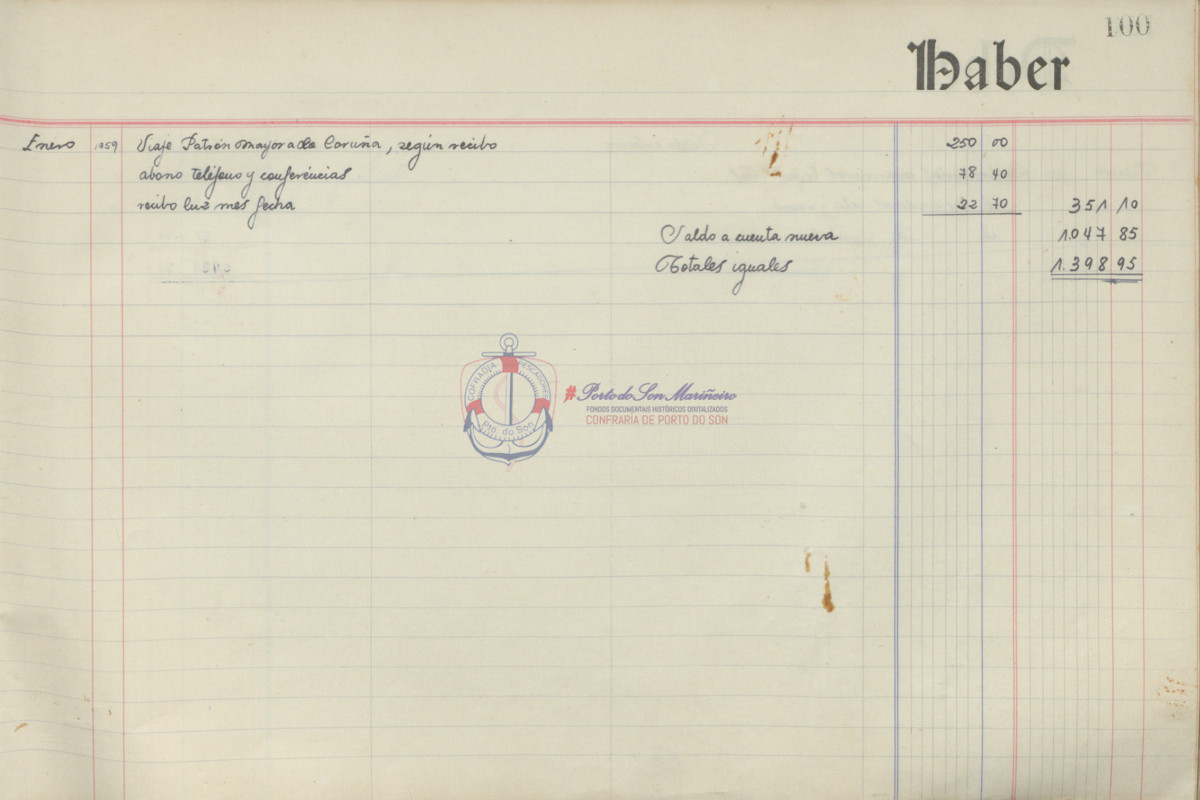 100
Haber
Enero 1959 Viaje Patrón mayor a La Coruña, según recibo 250 00
abono teléfono y conferéncias 78 40
recibo luz mes fecha 22 70 351 10
Saldo a cuenta nueva 1.047 85
Totales iguales 1.398 95
COFRADIA PESCADORES
Pto. do Son
#Porto do Son Mariñeiro
FONDOS DOCUMENTAIS HISTÓRICOS DIXITALIZADOS
CONFRARÍA DE PORTO DO SON